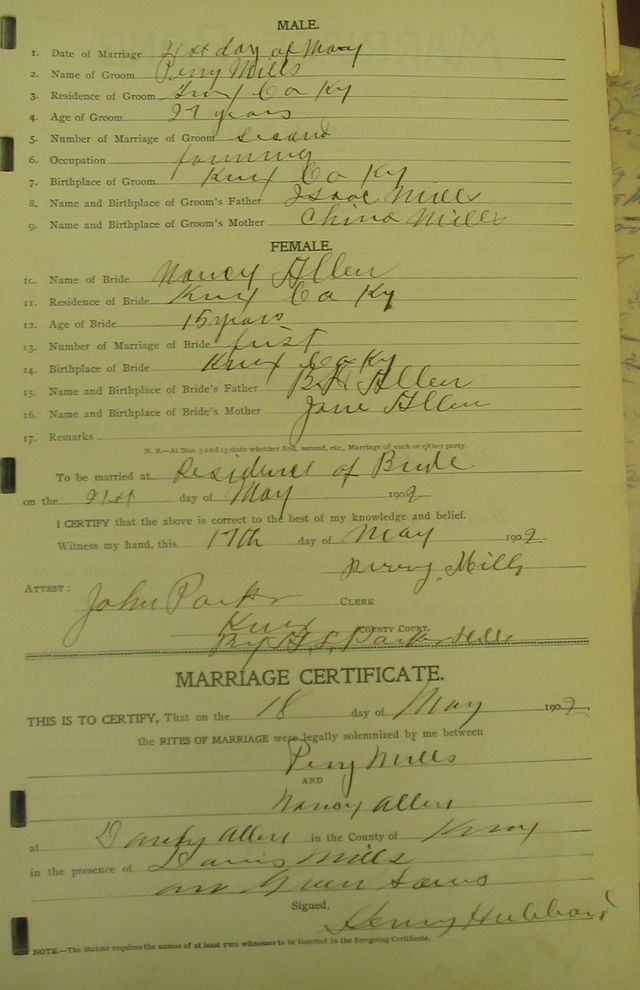 MALE.
1. Date of Marriage 21st day of May
2. Name of Groom Perry Mills
3. Residence of Groom Knox Co Ky
4. Age of Groom 27 years
5. Number of Marriage of Groom second
6. Occupation farming
7. Birthplace of Groom Knox Co Ky
8. Name and Birthplace of Groom's Father Isaac Mills
9. Name and Birthplace of Groom's Mother China Mills
FEMALE.
10. Name of Bride Nancy Allen
11. Residence of Bride Knox Co Ky
12. Age of Bride 15 years
13. Number of Marriage of Bride first
14. Birthplace of Bride Knox Co Ky
15. Name and Birthplace of Bride's Father Allen
16. Name and Birthplace of Bride's Mother Jane Allen
17. Remarks
N. B.—At Nos. 5 and 13 state whether first, second, etc., Marriage of each or either party.
To be married at Residence of Bride
on the 21st day of May 1902
I CERTIFY that the above is correct to the best of my knowledge and belief.
Witness my hand, this 17th day of May 1902
Perry Mills
ATTEST: John Parker CLERK
Knox COUNTY COURT.
By Parker
MARRIAGE CERTIFICATE.
THIS IS TO CERTIFY, That on the 18 day of May 1902.
the RITES OF MARRIAGE were legally solemnized by me between
Perry Mills
AND
Nancy Allen
at Allen in the County of Knox
in the presence of Mills
Green
Signed,
Henry Hubbard
NOTE.—The Statute requires the names of at least two witnesses to be inserted in the foregoing Certificate.